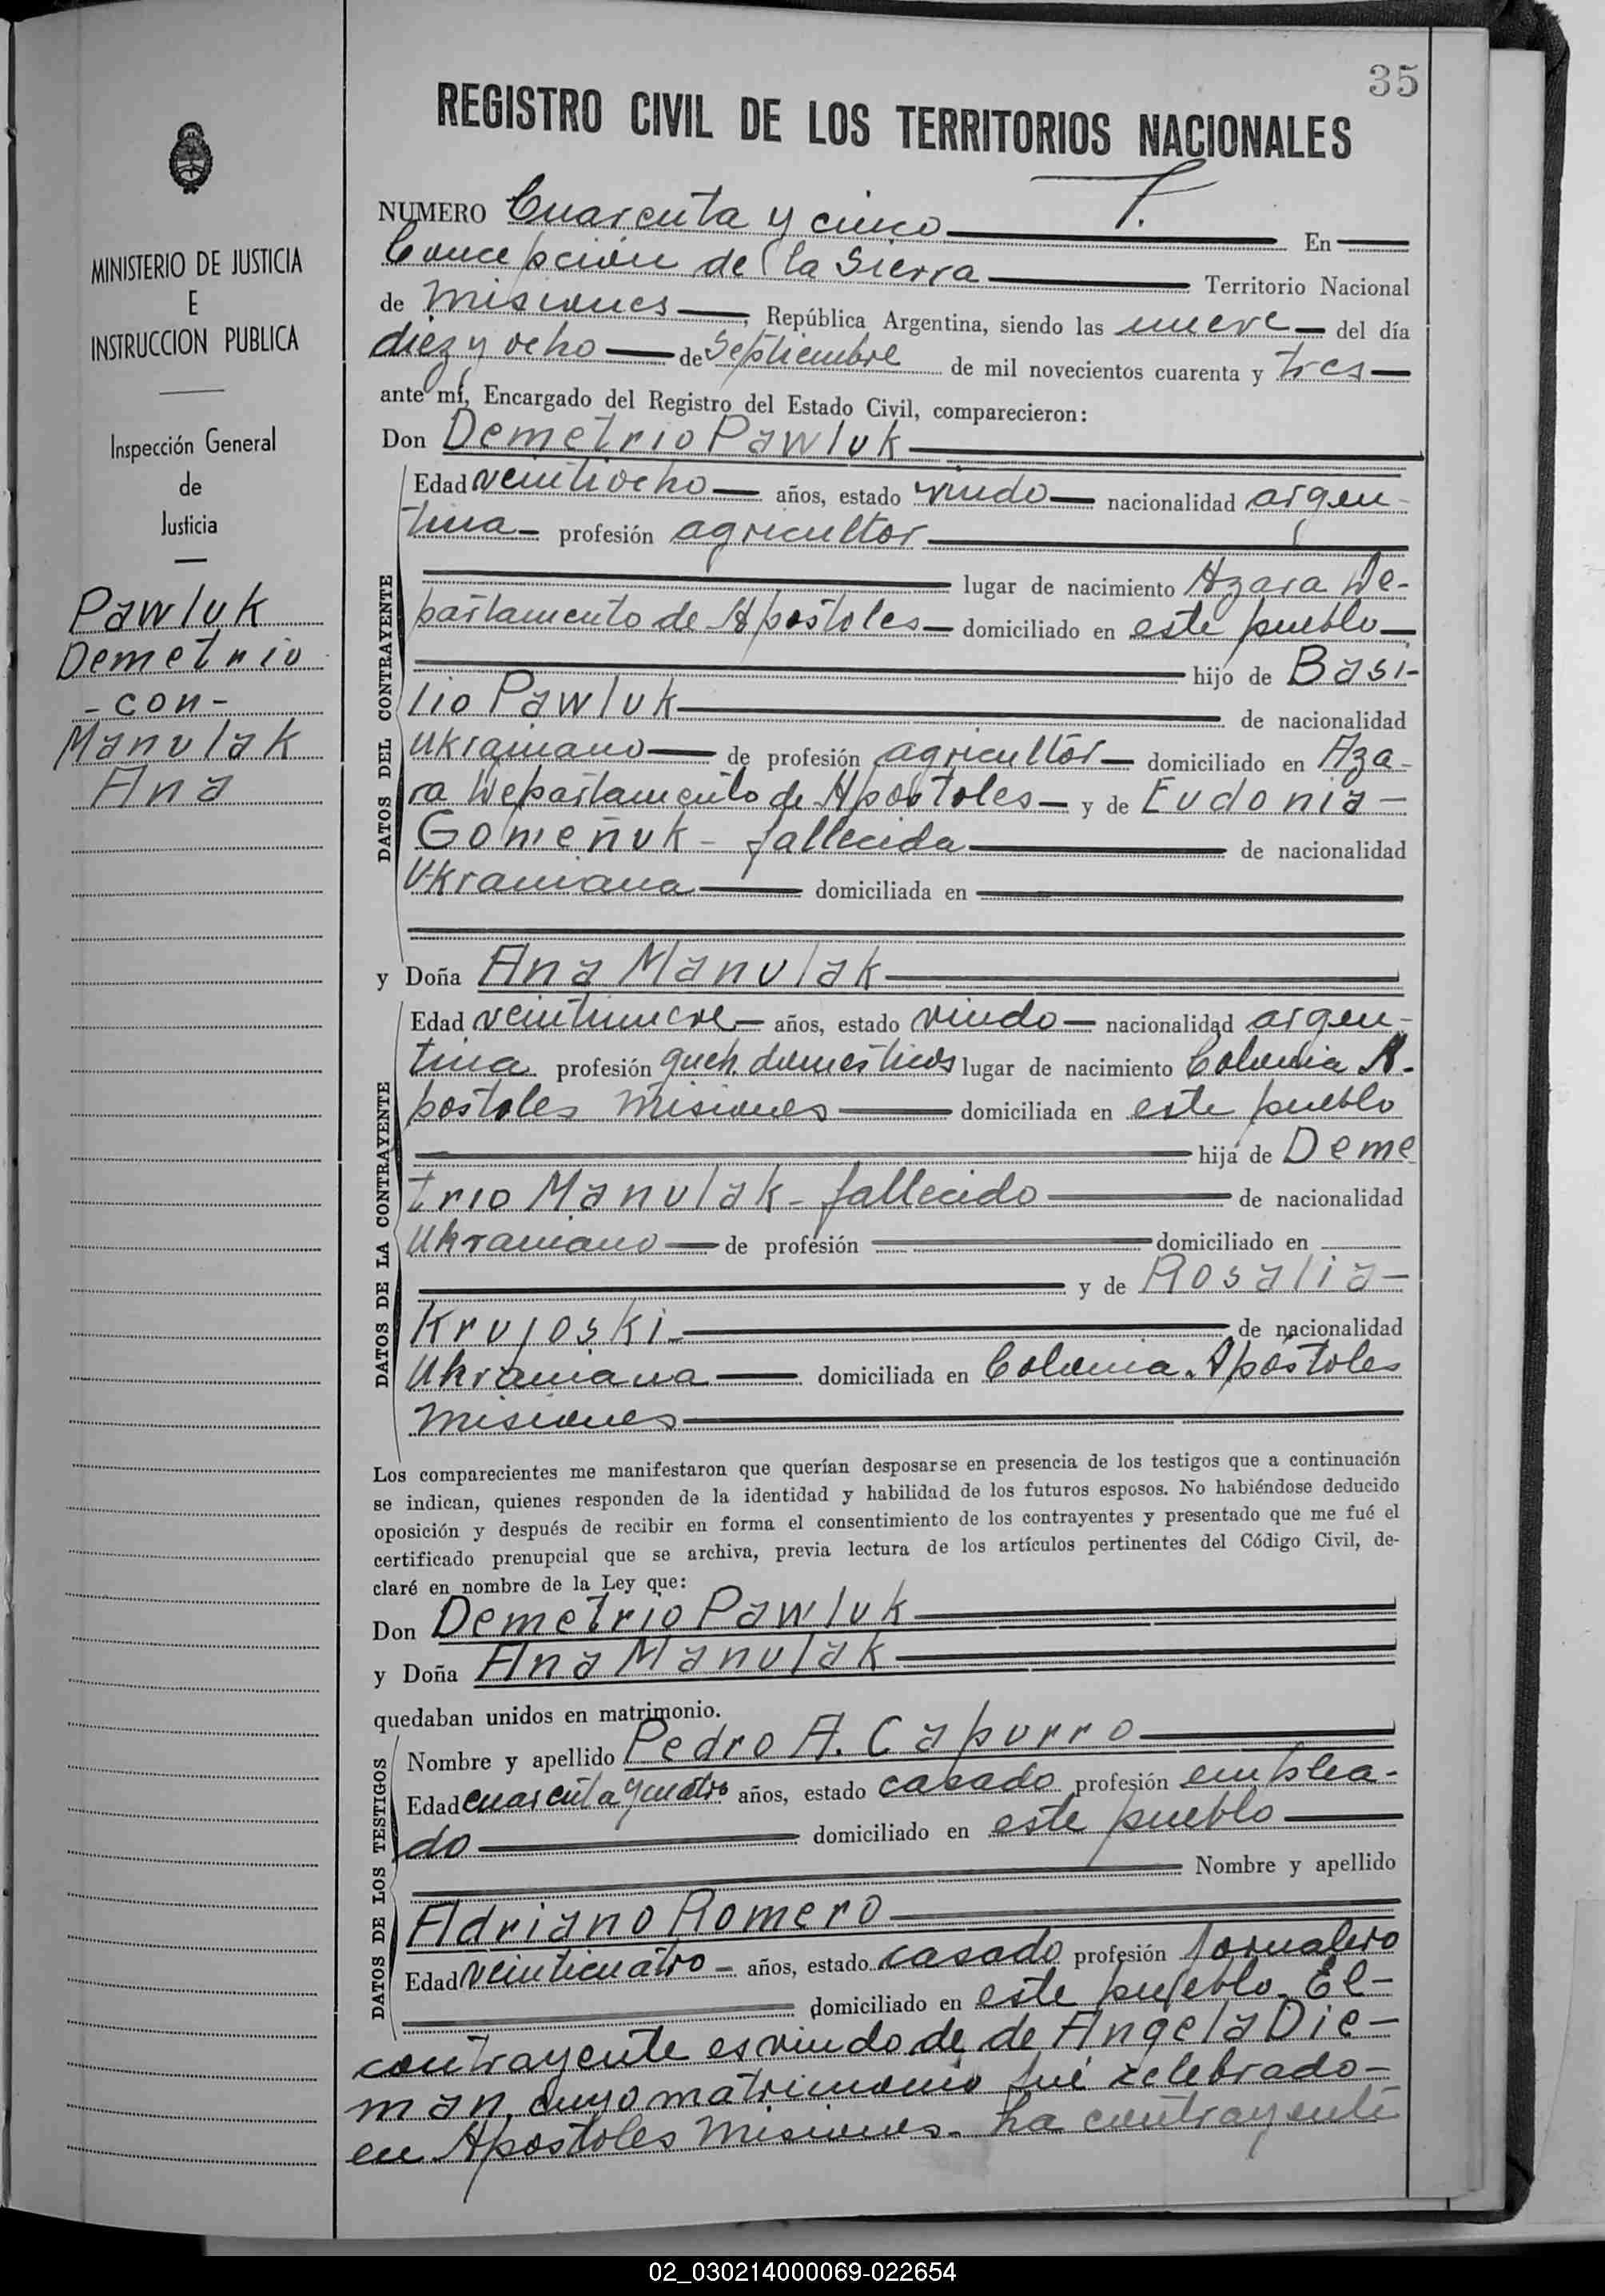 35
REGISTRO CIVIL DE LOS TERRITORIOS NACIONALES
MINISTERIO DE JUSTICIA
E
INSTRUCCION PUBLICA
Inspección General
de
Justicia
Pawluk
Demetrio
- con -
Manulak
Ana
NUMERO Cuarenta y cinco T. En
Concepción de la Sierra Territorio Nacional
de Misiones, República Argentina, siendo las nueve del día
diez y ocho de Septiembre de mil novecientos cuarenta y tres
ante mí, Encargado del Registro del Estado Civil, comparecieron:
Don Demetrio Pawluk
DATOS DEL CONTRAYENTE
Edad veintiocho años, estado viudo nacionalidad argen-
tina profesión agricultor
lugar de nacimiento Azara De-
partamento de Apostoles domiciliado en este pueblo
hijo de Basi-
lio Pawluk de nacionalidad
Ukraniano de profesión agricultor domiciliado en Aza-
ra Departamento de Apostoles y de Eudonia
Gomeñuk - fallecida de nacionalidad
Ukraniana domiciliada en
y Doña Ana Manulak
DATOS DE LA CONTRAYENTE
Edad veintinueve años, estado viudo nacionalidad argen-
tina profesión queh. domesticos lugar de nacimiento Colonia A-
postoles Misiones domiciliada en este pueblo
hija de Deme
trio Manulak - fallecido de nacionalidad
Ukraniano de profesión domiciliado en
y de Rosalia
Krujoski de nacionalidad
Ukraniana domiciliada en Colonia Apóstoles
Misiones
Los comparecientes me manifestaron que querían desposarse en presencia de los testigos que a continuación
se indican, quienes responden de la identidad y habilidad de los futuros esposos. No habiéndose deducido
oposición y después de recibir en forma el consentimiento de los contrayentes y presentado que me fué el
certificado prenupcial que se archiva, previa lectura de los artículos pertinentes del Código Civil, de-
claré en nombre de la Ley que:
Don Demetrio Pawluk
y Doña Ana Manulak
quedaban unidos en matrimonio.
DATOS DE LOS TESTIGOS
Nombre y apellido Pedro A. Capurro
Edad cuarenta y cuatro años, estado casado profesión emplea-
do domiciliado en este pueblo
Nombre y apellido
Adriano Romero
Edad veinticuatro - años, estado casado profesión jornalero
domiciliado en este pueblo. El-
contrayente es viudo de de Angela Die-
man, cuyo matrimonio fué celebrado-
en Apostoles Misiones. La contrayente
02_030214000069-022654